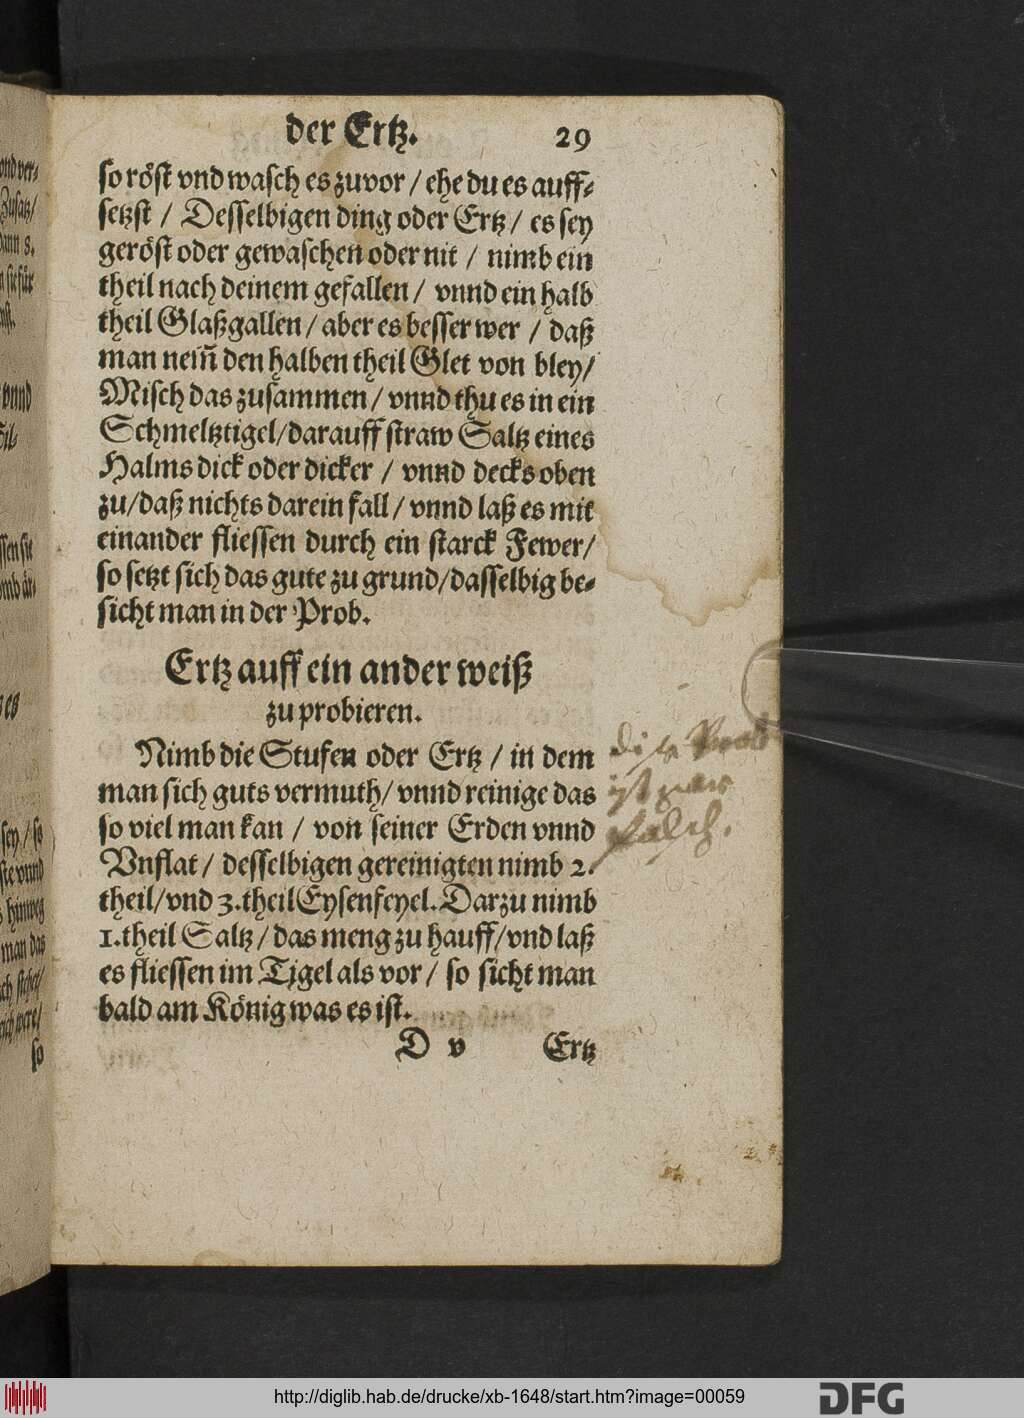 der Ertz. 29
so röst vnd wasch es zuvor / ehe du es auff-
setzst / Desselbigen ding oder Ertz / es sey
geröst oder gewaschen oder nit / nimb ein
theil nach deinem gefallen / vnnd ein halb
theil Glaßgallen / aber es besser wer / daß
man nem̄ den halben theil Glet von bley /
Misch das zusammen / vnnd thu es in ein
Schmeltztigel / darauff straw Saltz eines
Halms dick oder dicker / vnnd decks oben
zu / daß nichts darein fall / vnnd laß es mit
einander fliessen durch ein starck Fewer /
so setzt sich das gute zu grund / dasselbig be-
sicht man in der Prob.
Ertz auff ein ander weiß
zu probieren.
Nimb die Stufen oder Ertz / in dem
man sich guts vermuth / vnnd reinige das
so viel man kan / von seiner Erden vnnd
Vnflat / desselbigen gereinigten nimb 2.
theil / vnd 3. theil Eysenfeyel. Darzu nimb
1. theil Saltz / das meng zu hauff / vnd laß
es fliessen im Tigel als vor / so sicht man
bald am König was es ist.
D v Ertz
dise Prob
ist
falsch.
http://diglib.hab.de/drucke/xb-1648/start.htm?image=00059
DFG